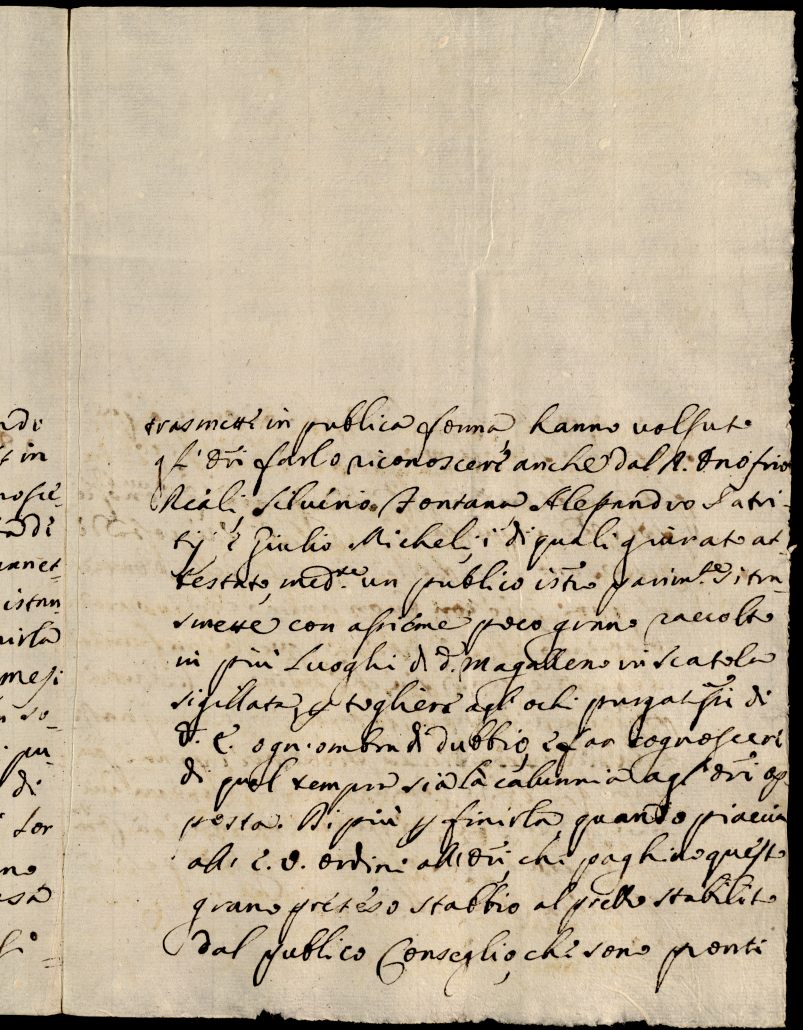 trasmette in publica forma, hanno volsuto
gl' Ori farlo riconoscere anche dal R. Onofrio
Reali, Silverio Fontana Alesandro Patri-
tij, e Giulio Micheli, i di quali giurato at-
testato, med.te un publico istro parim.te si tra-
smette con assieme poco grano raccolto
in più Luoghi di d. magazzeno in scatola
sigillata, p togliere agl' ochi purgatiss.i di
V. E. ogni ombra di dubbio, e far cognoscere
di qual tempra sia la calunnia agl' Ori op-
posta. Di più p finirla, quando piaccia
all' E. V. ordini alli Ori, che paghino questo
grano preteso stabbio al prezzo stabilito
dal publico Conseglio, che sono pronti
ndo
in
di
istan
nirla
mesi
so-
pu-
di